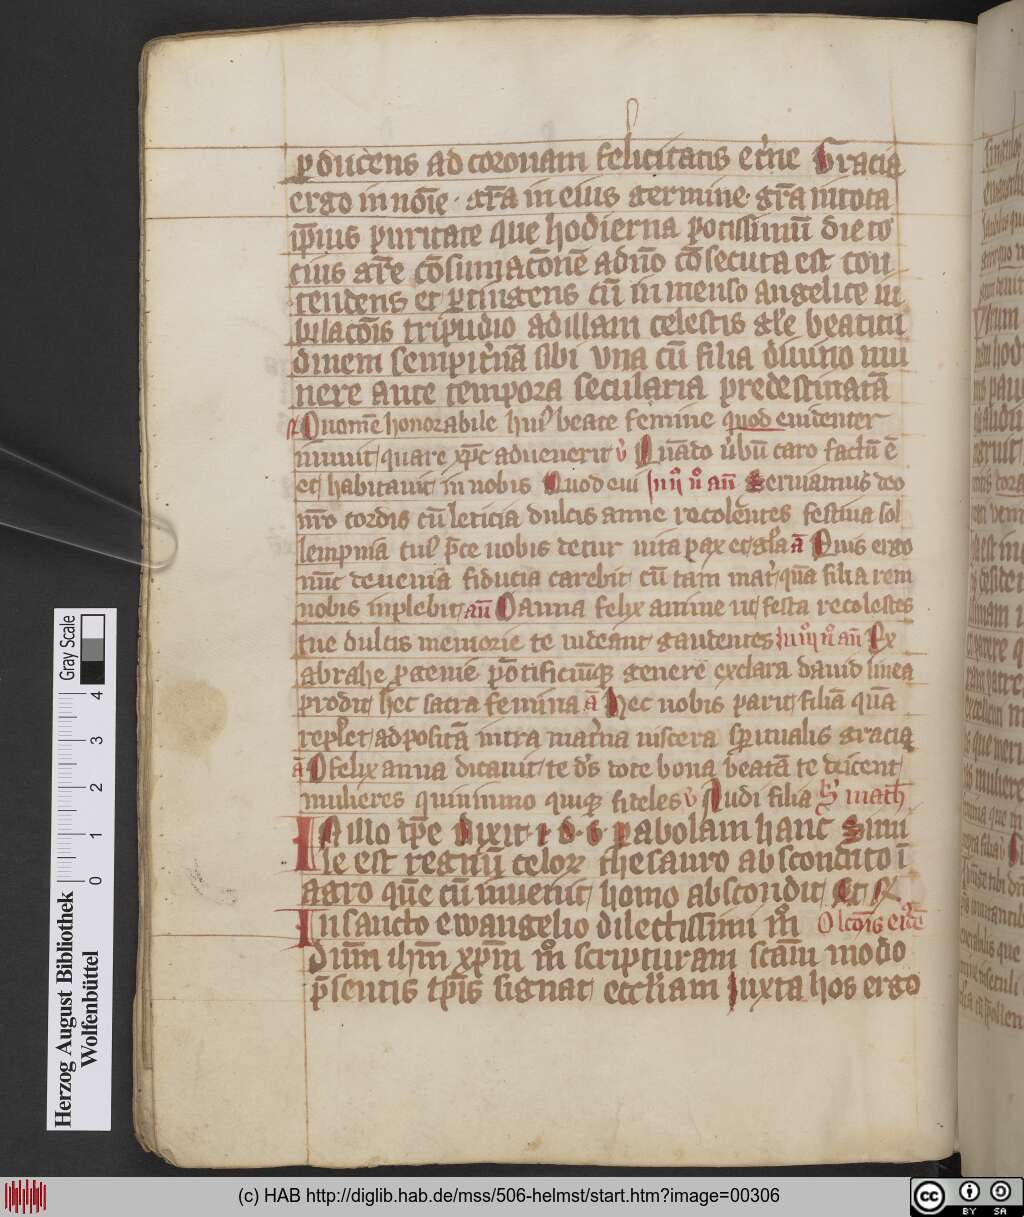 ꝑducens ad coronam felicitatis et'ne Gracia
ergo in no͞ie · gr͞a in eius germine · gr͞a in tota
ip͞ius puritate que hodierna potissimu͞ die to
cius gr͞e co͞sumac͞one͞ ad un͞o co͞secuta est con
tendens et ꝑtingens cu͞ inmenso angelice iu
bilac͞ois tripudio ad illam celestis gl'e beatitu
dinem sempit'na͞ sibi vna cu͞ filia diuino mu
nere ante tempora secularia predestinata͞
Quome͞ honorabile hui' beate femine quod euidenter
innuit quare xp͞c aduenerit v̓ Qua͞do v͛bu͞ caro factu͞ e͞
et habitauit in nobis Quod eui In ijͦ nͦ an͞ Seruiamus deo
nr͞o cordis cu͞ leticia dulcis anne recole͞tes festiua sol
lempnia tui' p͛ce nobis detur uita pax et gl'a a͞ Quis ergo
nu͞c de uenia fiducia carebit cu͞ tam mat͛ qua͞ filia rem
nobis inplebit an͞ O anna felix anime ut festa recolestes
tue dulcis memorie te uidea͞nt gaudentes In iijͦ nͦ an͞ Ex
abrahe ꝑgenie͞ po͞tificiu͞qꝫ genere͞ exclara dauid linea
prodijt hec sacra femina a͞ Hec nobis parit filia͞ qua͞
repl'et ad posita͞ intra mat͛na uiscera sp͞iritualis gracia
a͞ O felix anna dicauit te d͞s tote bona beata͞ te dicent
mulieres quinimmo quiqꝫ fideles v̓ Audi filia S͛ math͛
In illo tp͞e Dixit · i · d · s · parabolam hanc Simi
le est regnu͞ celoꝝ thesauro abscondito i͞
agro que͞ cu͞ inuenit homo abscondit Et R͛
In sancto ewangelio dilectissimi mͦi Ol'co͞is eiꝰde͞
Dn͞m ih͞m xp͞m mͦ scripturam sc͞am modo
p͛sentis tp͞is signat eccl'iam Iuxta hos ergo
Herzog August Bibliothek
Wolfenbüttel
0 1 2 3 4
Gray Scale
(c) HAB http://diglib.hab.de/mss/506-helmst/start.htm?image=00306
cc BY SA